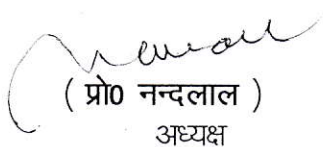 ( प्रो0 नन्दलाल )
अध्यक्ष